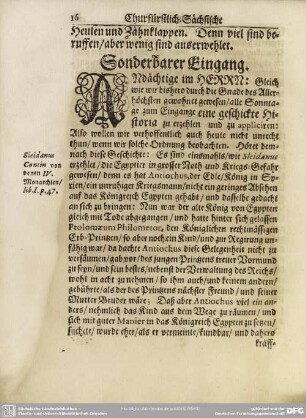 16 Churfürstlich-Sächsische
Heulen und Zähnklappen. Denn viel sind be-
ruffen/ aber wenig sind auserwehlet.
Sonderbarer Eingang.
ANdächtige im HERRN: Gleich
wie wir bishero durch die Gnade des Aller-
höchsten gewohnet gewesen/ alle Sonnta-
ge zum Eingange eine geschickte Hi-
storia zu erzehlen und zu appliciren:
Also wollen wir verhoffentlich auch heute nicht unrecht
thun/ wenn wir solche Ordnung beobachten. Höret dem-
nach diese Geschicht: Es sind einsmahls/ wie Sleidanus
erzehlet/ die Egyptier in grosser Noth und Kriegs-Gefahr
gewesen/ denn es hat Antiochus, der Edle/ König in Sy-
rien/ ein unruhiger Kriegsmann/ nicht ein geringes Absehen
auf das Königreich Egypten gehabt/ und dasselbe gedacht
an sich zu bringen: Nun war der alte König von Egypten
gleich mit Tode abgegangen/ und hatte hinter sich gelassen
Ptolomæum Philometor, den Königlichen rechtmässigen
Erb-Printzen/ so aber noch ein Kind/ und zur Regierung un-
fähig war/ da dachte Antiochus diese Gelegenheit nicht zu
versäumen/ gab vor/ des jungen Printzens treuer Vormund
zu seyn/ und sein bestes/ nebenst der Verwaltung des Reichs/
wohl in acht zu nehmen/ so ihm auch/ und keinem andern
gebührte/ als der des Printzens nächster Freund/ und seiner
Mutter Bruder wäre; Daß aber Antiochus viel ein an-
ders/ nehmlich das Kind aus dem Wege zu räumen/ und
sich mit guter Manier in das Königreich Egypten zu
suchete/ wurde eher/ als er vermeinte/ kundbar/ und dahero
kräff-
Sleidanus
Contin von
denen IV.
Monarchien/
lib. I. p. 47.